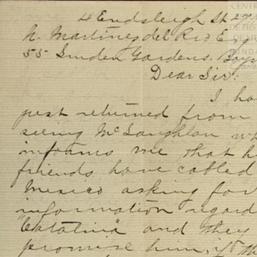 4 Endsleigh St 27
N. Martinez del Rio E
55 Linden Gardens. Bays
Dear Sir.
I ha
just returned from
seeing McLaughlan wh
informs me that h
friends have cabled
Mexico asking for
information regard
"Catalina" and they
promise him, if th